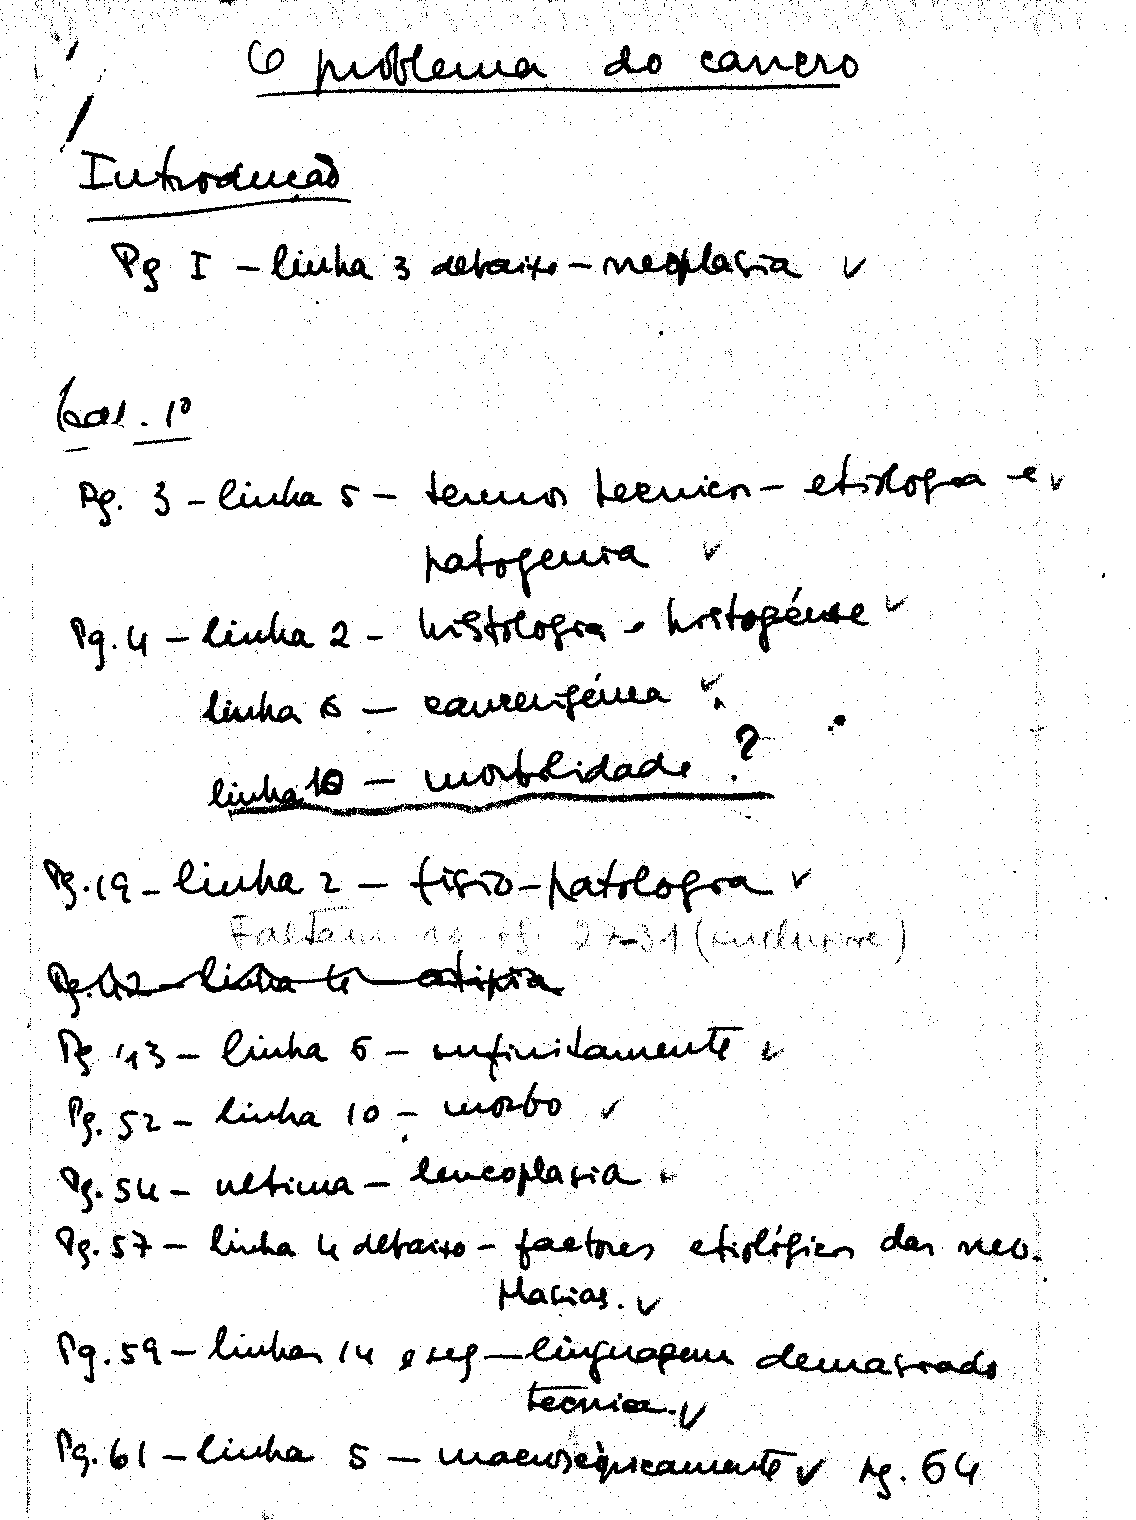 O problema do cancro
Introdução
Pg I – linha 3 debaixo – neoplasia ✓
Cap. 1º
Pg. 3 – linha 5 – termos tecnicos – etiologia e ✓
patogenia ✓
Pg. 4 – linha 2 – histologia e histogénese ✓
linha 6 – cancerigénea ✓
linha 10 – morbilidade ?
Pg. 19 – linha 2 – fisio-patologia ✓
Faltam pg. 27-31 (inclusive)
Pg. 42 – linha 4 – atipia
Pg 43 – linha 6 – infinitamente ✓
Pg. 52 – linha 10 – morbo ✓
Pg. 54 – ultima – leucoplasia ✓
Pg. 57 – linha 4 debaixo – factores etiológicos das neo-
plasias. ✓
Pg. 59 – linhas 14 e seg – linguagem demasiado
tecnica. ✓
Pg. 61 – linha 5 – macroscópicamente ✓ pg. 64